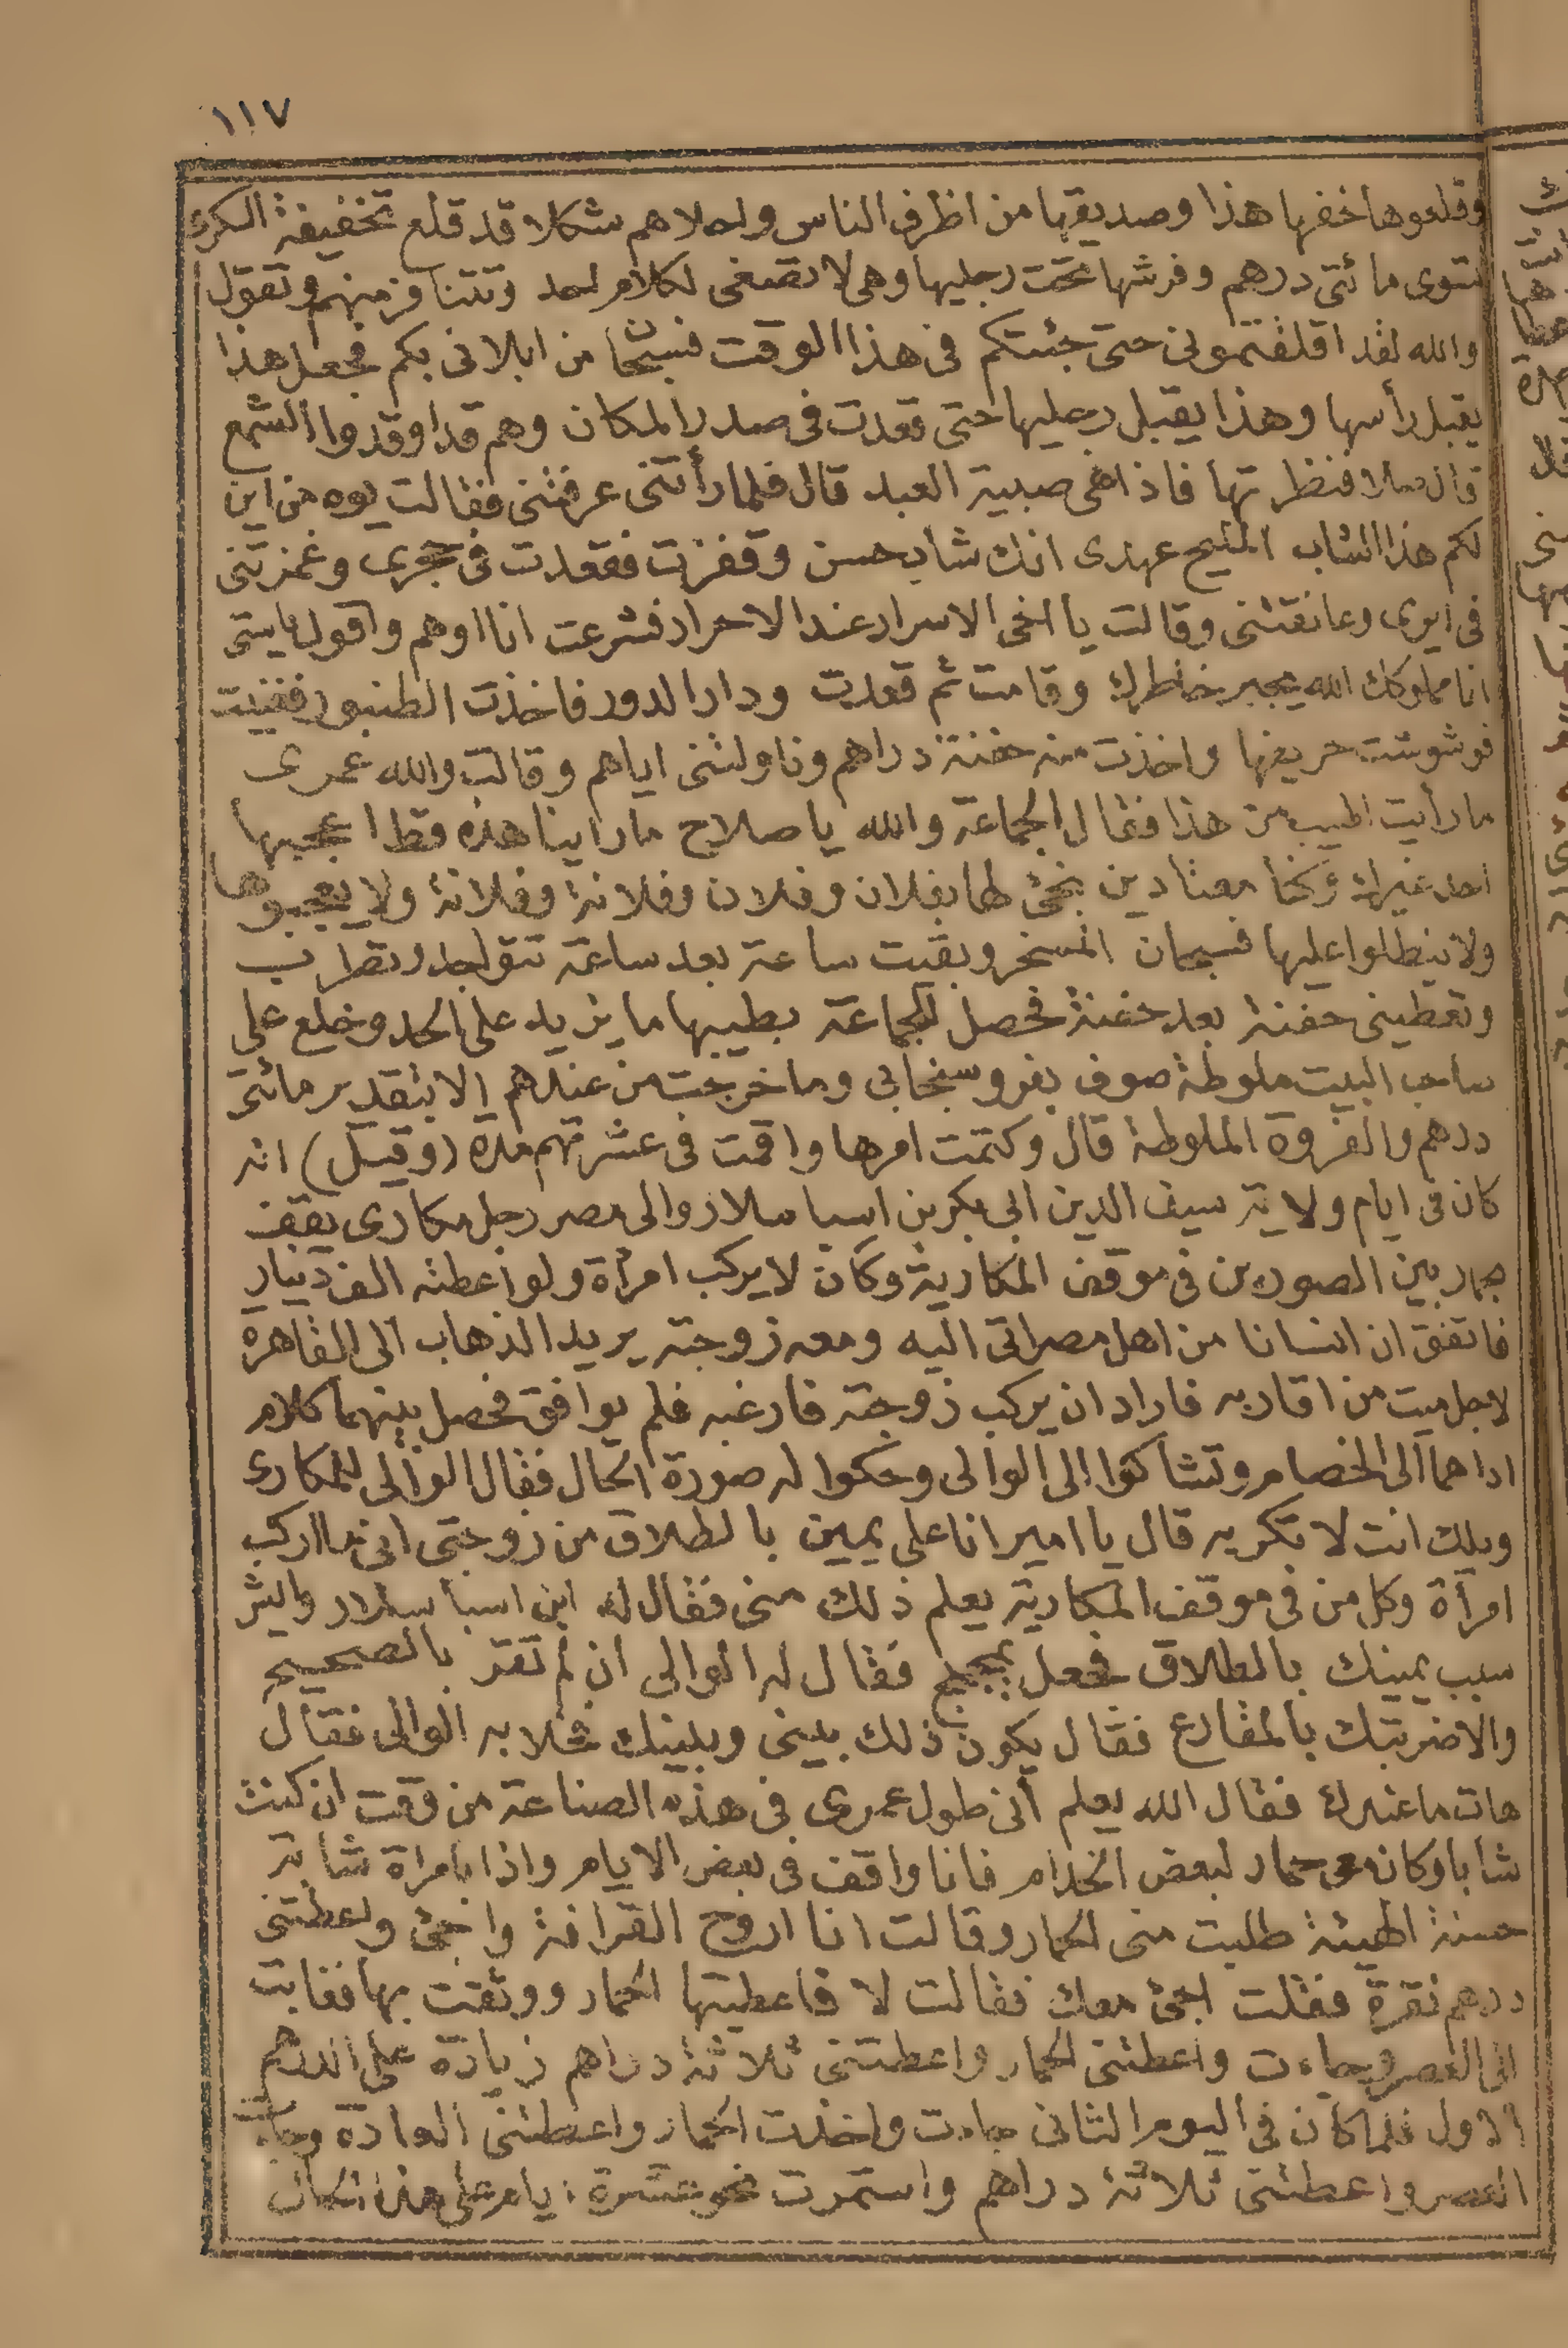 ١١٧
وقلعوها خفها هذا وصديقها من اظرف الناس واحلاهم شكلا قد قلع تخفيفة الكرك
تسوى مائتى درهم وفرشها تحت رجليها وهى لا تصغى لكلام احد وتتنافر منهم وتقول
والله لقد اقلقتمونى حتى جئتكم فى هذا الوقت فسبحان من ابلانى بكم فجعل هذا
يقبل رأسها وهذا يقبل رجليها حتى قعدت فى صدر المكان وهم قد اوقدوا الشمع
قال صلا فنظرتها فاذا هى صبية العبد قال فلما رأتنى عرفتنى فقالت يوه من اين
لكم هذا الشاب المليح عهدى انك شاب حسن وقفزت فقعدت فى حجرى وغمزتنى
فى ايرى وعانقتنى وقالت يا اخى الاسرار عند الاحرار فشرعت انا اوهم واقول ياستى
انا مملوكك الله يجبر خاطرك وقامت ثم قعدت ودار الدور فاخذت الطنبور فغنت
فوشوشت حريفها واخذت منه حفنة دراهم وناولتنى اياهم وقالت والله عمرى
ما رأيت اطيب من هذا فقال الجماعة والله يا صلاح ما راينا هذه قط اعجبها
احد غيرك وكنا معتادين نجئ لها بفلان وفلان وفلانة وفلانة ولا يعجبوها
ولا ينطلوا عليها فسبحان المسخر وبقيت ساعة بعد ساعة تتواجد وتطرب
وتعطينى حفنة بعد حفنة فحصل للجماعة بطيبها ما يزيد على الحد وخلع على
صاحب البيت ملوطة صوف بفرو سنجابى وما خرجت من عندهم الا بتقدير مائتى
درهم والفروة الملوطة قال وكتمت امرها واقمت فى عشرتهم مدة (وقيل) انه
كان فى ايام ولاية سيف الدين ابى بكر بن اسبا سلار والى مصر رجل مكارى يقف
بحمار بين الصورين فى موقف المكارية وكان لا يركب امرأة ولو اعطته الف دينار
فاتفق ان انسانا من اهل مصر اتى اليه ومعه زوجته يريد الذهاب الى القاهرة
لاجل ميت من اقاربه فاراد ان يركب زوجته فارغبه فلم يوافق فحصل بينهما كلام
اداهما الى الخصام وتشاكوا الى الوالى وحكوا له صورة الحال فقال الوالى للمكارى
ويلك انت لا تكريه قال يا امير انا على يمين بالطلاق من زوجتى انى ما اركب
امرأة وكل من فى موقف المكارية يعلم ذلك منى فقال له ابن اسبا سلار وايش
سبب يمينك بالطلاق فجعل يمجمج فقال له الوالى ان لم تقر بالصحيح
والا ضربتك بالمقارع فقال يكون ذلك بينى وبينك فخلا به الوالى فقال
هات ما عندك فقال الله يعلم أنى طول عمرى فى هذه الصناعة من وقت ان كنت
شابا وكان معى حمار لبعض الخدام فانا واقف فى بعض الايام واذا بامراة شابة
حسنة الهيئة طلبت منى الحمار وقالت انا اروح القرافة واجئ واعطتنى
درهم نقرة فقلت اجئ معك فقالت لا فاعطيتها الحمار ووثقت بها فغابت
الى العصر وجاءت واعطتنى الحمار واعطتنى ثلاثة دراهم زيادة على الدرهم
الاول فلما كان فى اليوم الثانى جاءت واخذت الحمار واعطتنى العادة وجاءت
العصر واعطتنى ثلاثة دراهم واستمرت نحو عشرة ايام على هذا الحال